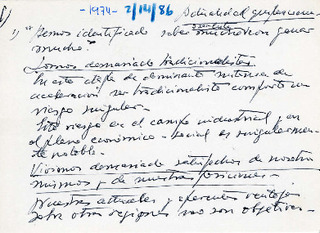 -1974- 2/14/86 Actualidad guipuzcoana
1) "Hemos identificado saber con ganar
mucho"
Somos demasiado tradicionalistas
En esta etapa de dominante intensa
aceleración ser tradicionalista comporta un
riesgo singular.
Este riesgo en el campo industrial y en
el plano económico-social es singularmen-
te notable.
Vivimos demasiado satisfechos de nosotros
mismos y de nuestras posiciones.
Nuestras actuales y aparentes ventajas
sobre otras regiones no son objetivas-